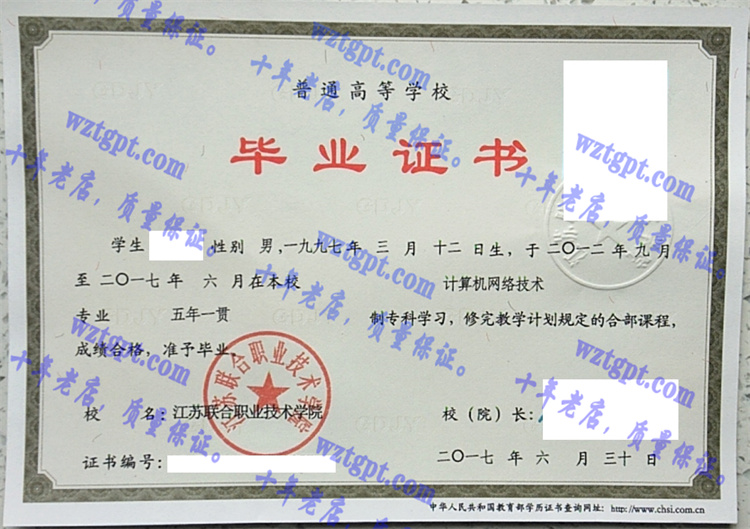 普通高等学校
毕业证书
学生 性别 男,一九九七年 三 月 十二 日生,于二〇一二年 九 月
至二〇一七年 六 月在本校 计算机网络技术
专业 五年一贯 制专科学习,修完教学计划规定的合部课程,
成绩合格,准予毕业。
江苏联合职业技术学院
校 名:江苏联合职业技术学院 校(院)长:
证书编号: 二〇一七 年 六 月 三十 日
中华人民共和国教育部学历证书查询网址:http://www.chsi.com.cn
wztgpt.com
十年老店,质量保证。
wztgpt.com
十年老店,质量保证。
wztgpt.com
十年老店,质量保证。
wztgpt.com
十年老店,质量保证。
wztgpt.com
十年老店,质量保证。
wztgpt.com
十年老店,质量保证。
wztgpt.com
十年老店,质量保证。
wztgpt.com
十年老店,质量保证。